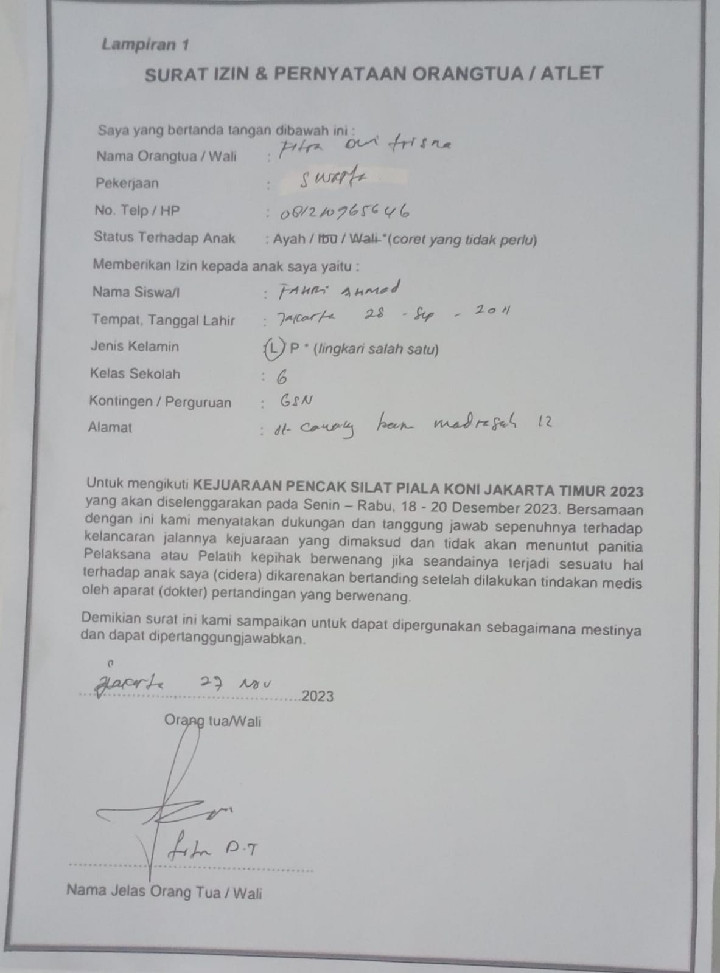 Lampiran 1
SURAT IZIN & PERNYATAAN ORANGTUA / ATLET
Saya yang bertanda tangan dibawah ini :
Nama Orangtua / Wali : Fitra Dwi Trisna
Pekerjaan : Swasta
No. Telp / HP : 081210965646
Status Terhadap Anak : Ayah / Ibu / Wali *(coret yang tidak perlu)
Memberikan Izin kepada anak saya yaitu :
Nama Siswa/I : FAHRI AHMAD
Tempat, Tanggal Lahir : Jakarta 28 - Sep - 2011
Jenis Kelamin : L P * (lingkari salah satu)
Kelas Sekolah : 6
Kontingen / Perguruan : GSN
Alamat : madrasah 12
Untuk mengikuti KEJUARAAN PENCAK SILAT PIALA KONI JAKARTA TIMUR 2023
yang akan diselenggarakan pada Senin – Rabu, 18 - 20 Desember 2023. Bersamaan
dengan ini kami menyatakan dukungan dan tanggung jawab sepenuhnya terhadap
kelancaran jalannya kejuaraan yang dimaksud dan tidak akan menuntut panitia
Pelaksana atau Pelatih kepihak berwenang jika seandainya terjadi sesuatu hal
terhadap anak saya (cidera) dikarenakan bertanding setelah dilakukan tindakan medis
oleh aparat (dokter) pertandingan yang berwenang.
Demikian surat ini kami sampaikan untuk dapat dipergunakan sebagaimana mestinya
dan dapat dipertanggungjawabkan.
Jakarta 27 Nov 2023
Orang tua/Wali
Fitra D.T
Nama Jelas Orang Tua / Wali